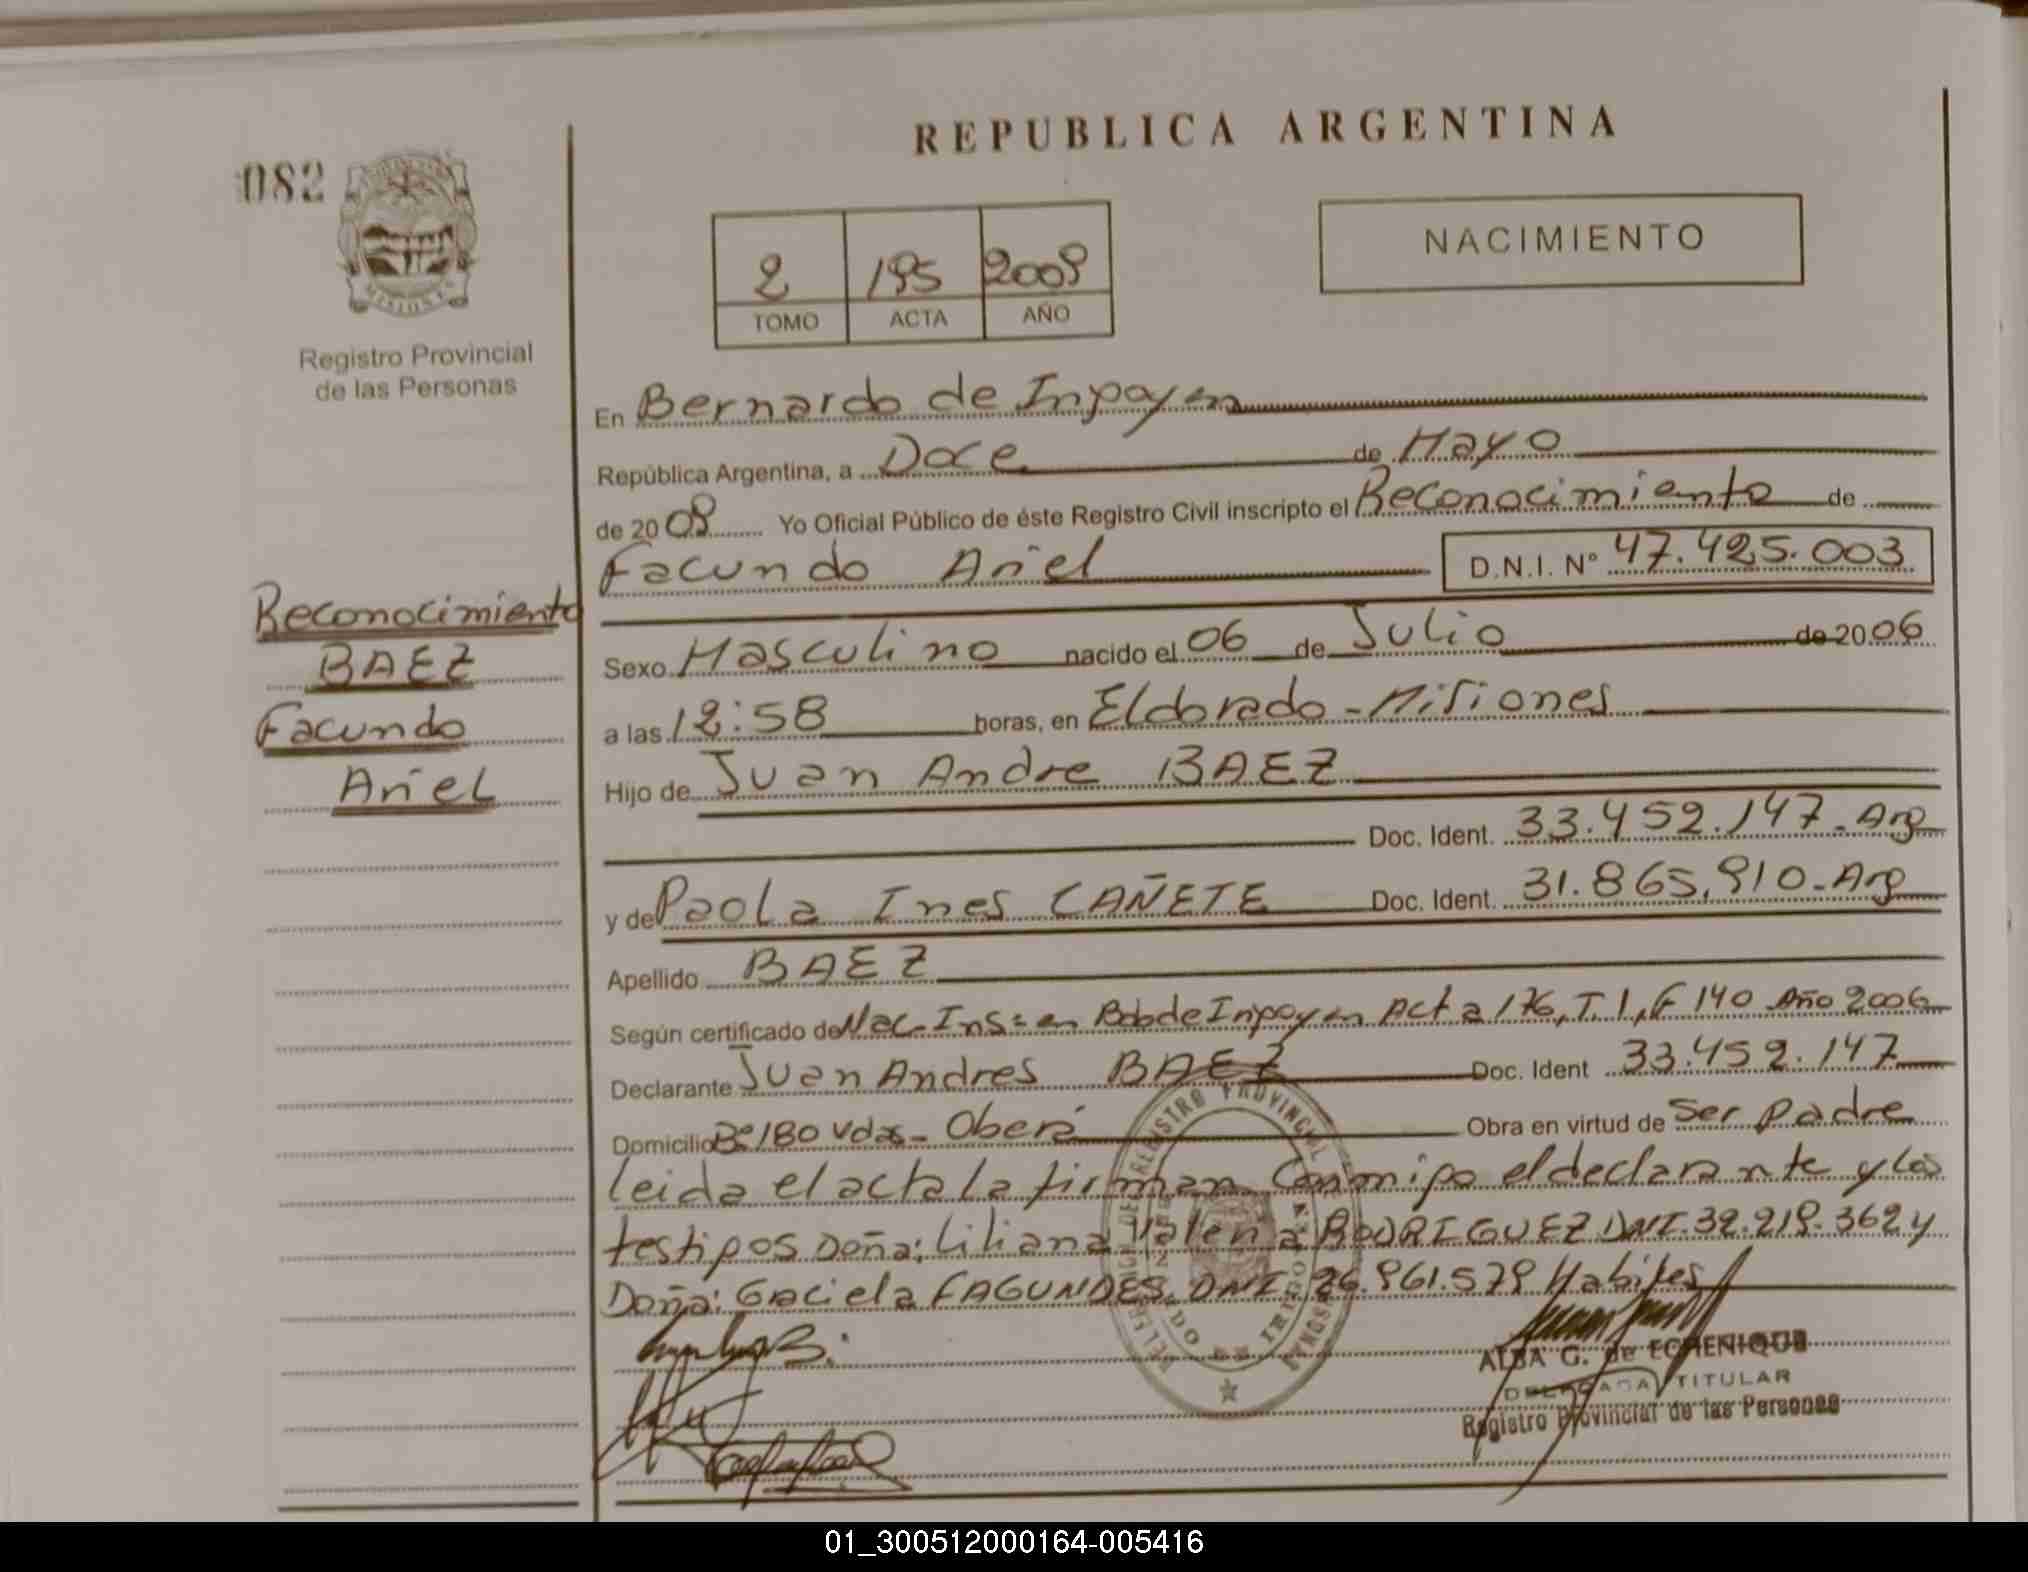 REPUBLICA ARGENTINA
082
NACIMIENTO
2 195 2009
TOMO ACTA AÑO
MISIONES
Registro Provincial
de las Personas
En Bernardo de Irigoyen
República Argentina, a Doce de Mayo
de 2009 Yo Oficial Público de éste Registro Civil inscripto el Reconocimiento de
Facundo Ariel D.N.I. N° 47.425.003
Reconocimiento
BAEZ
Facundo
Ariel
Sexo Masculino nacido el 06 de Julio de 2006
a las 12:58 horas, en Eldorado - Misiones
Hijo de Juan Andre BAEZ
Doc. Ident. 33.452.147 - Arg
y de Paola Ines CAÑETE Doc. Ident. 31.865.910 - Arg
Apellido BAEZ
Según certificado de Nac. Ins= en Bdo de Irigoyen Acta 176, T. 1, F 140 Año 2006
Declarante Juan Andres BAEZ Doc. Ident 33.452.147
Domicilio Bº 180 Vdas - Oberá Obra en virtud de Ser Padre
leida el acta la firman Conmigo el declarante y los
testigos Doña: Liliana Valeria RODRIGUEZ DNI. 32.219.362 y
Doña: Graciela FAGUNDES DNI. 26.961.579 Habiles
ALBA G. de ECHENIQUE
DELEGADA TITULAR
Registro Provincial de las Personas
01_300512000164-005416